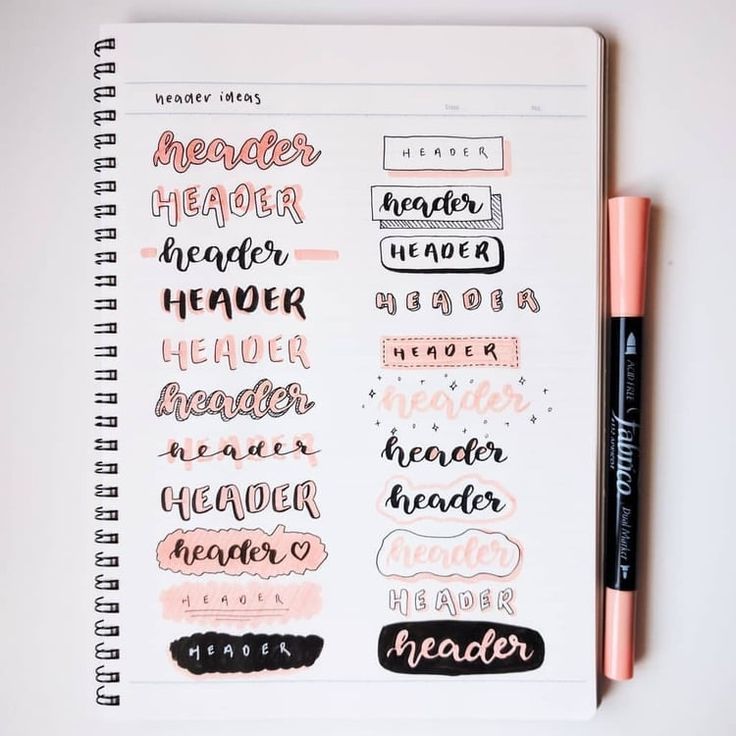 header ideas
Date
No.
header
HEADER
header
HEADER
HEADER
header
header
HEADER
HEADER
header
HEADER
HEADER
HEADER
header
HEADER
HEADER
HEADER
header
header
header
header
HEADER
header
ACID FREE
fabrico
Dual Marker